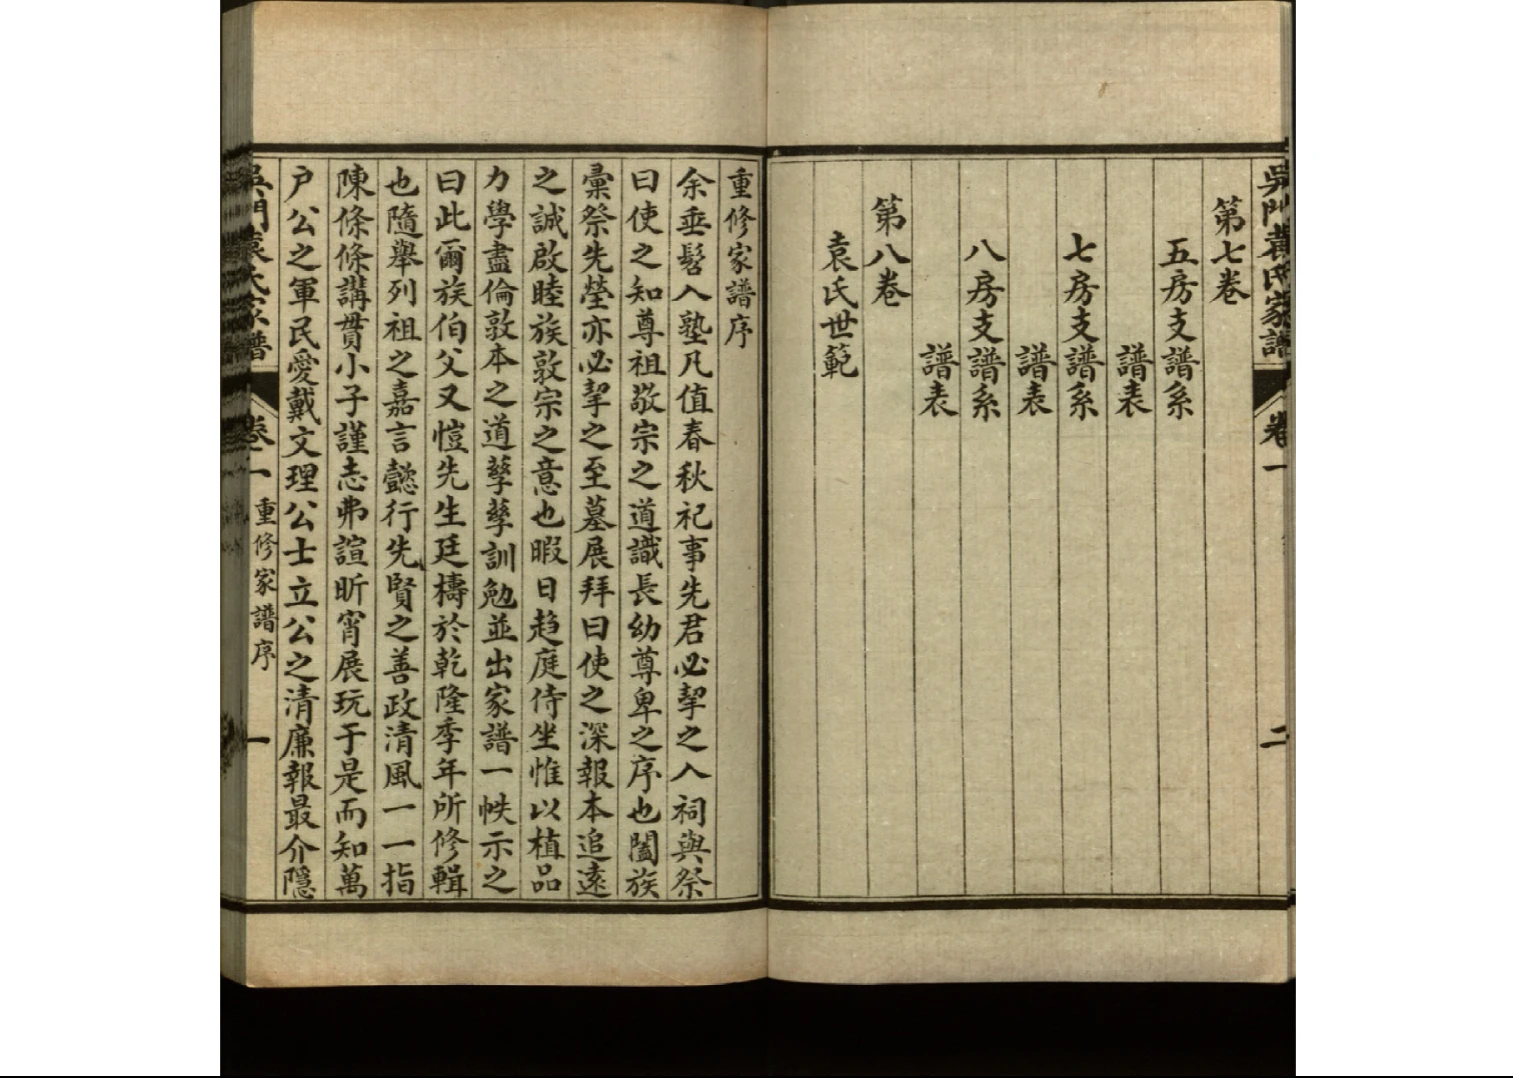 吳門袁氏家譜 卷一 二
第七卷
五房支譜系
譜表
七房支譜系
譜表
八房支譜系
譜表
第八卷
袁氏世範
重修家譜序
余垂髫入塾凡值春秋祀事先君必挈之入祠與祭
曰使之知尊祖敬宗之道識長幼尊卑之序也闔族
彙祭先塋亦必挈之至墓展拜曰使之深報本追遠
之誠啟睦族敦宗之意也暇日趋庭侍坐惟以植品
力學盡倫敦本之道孳孳訓勉並出家譜一帙示之
曰此爾族伯父又愷先生廷檮於乾隆季年所修輯
也隨舉列祖之嘉言懿行先賢之善政清風一一指
陳條條講貫小子謹志弗諠昕宵展玩于是而知萬
户公之軍民愛戴文理公士立公之清廉報最介隱
吳門袁氏家譜 卷一 重修家譜序 一